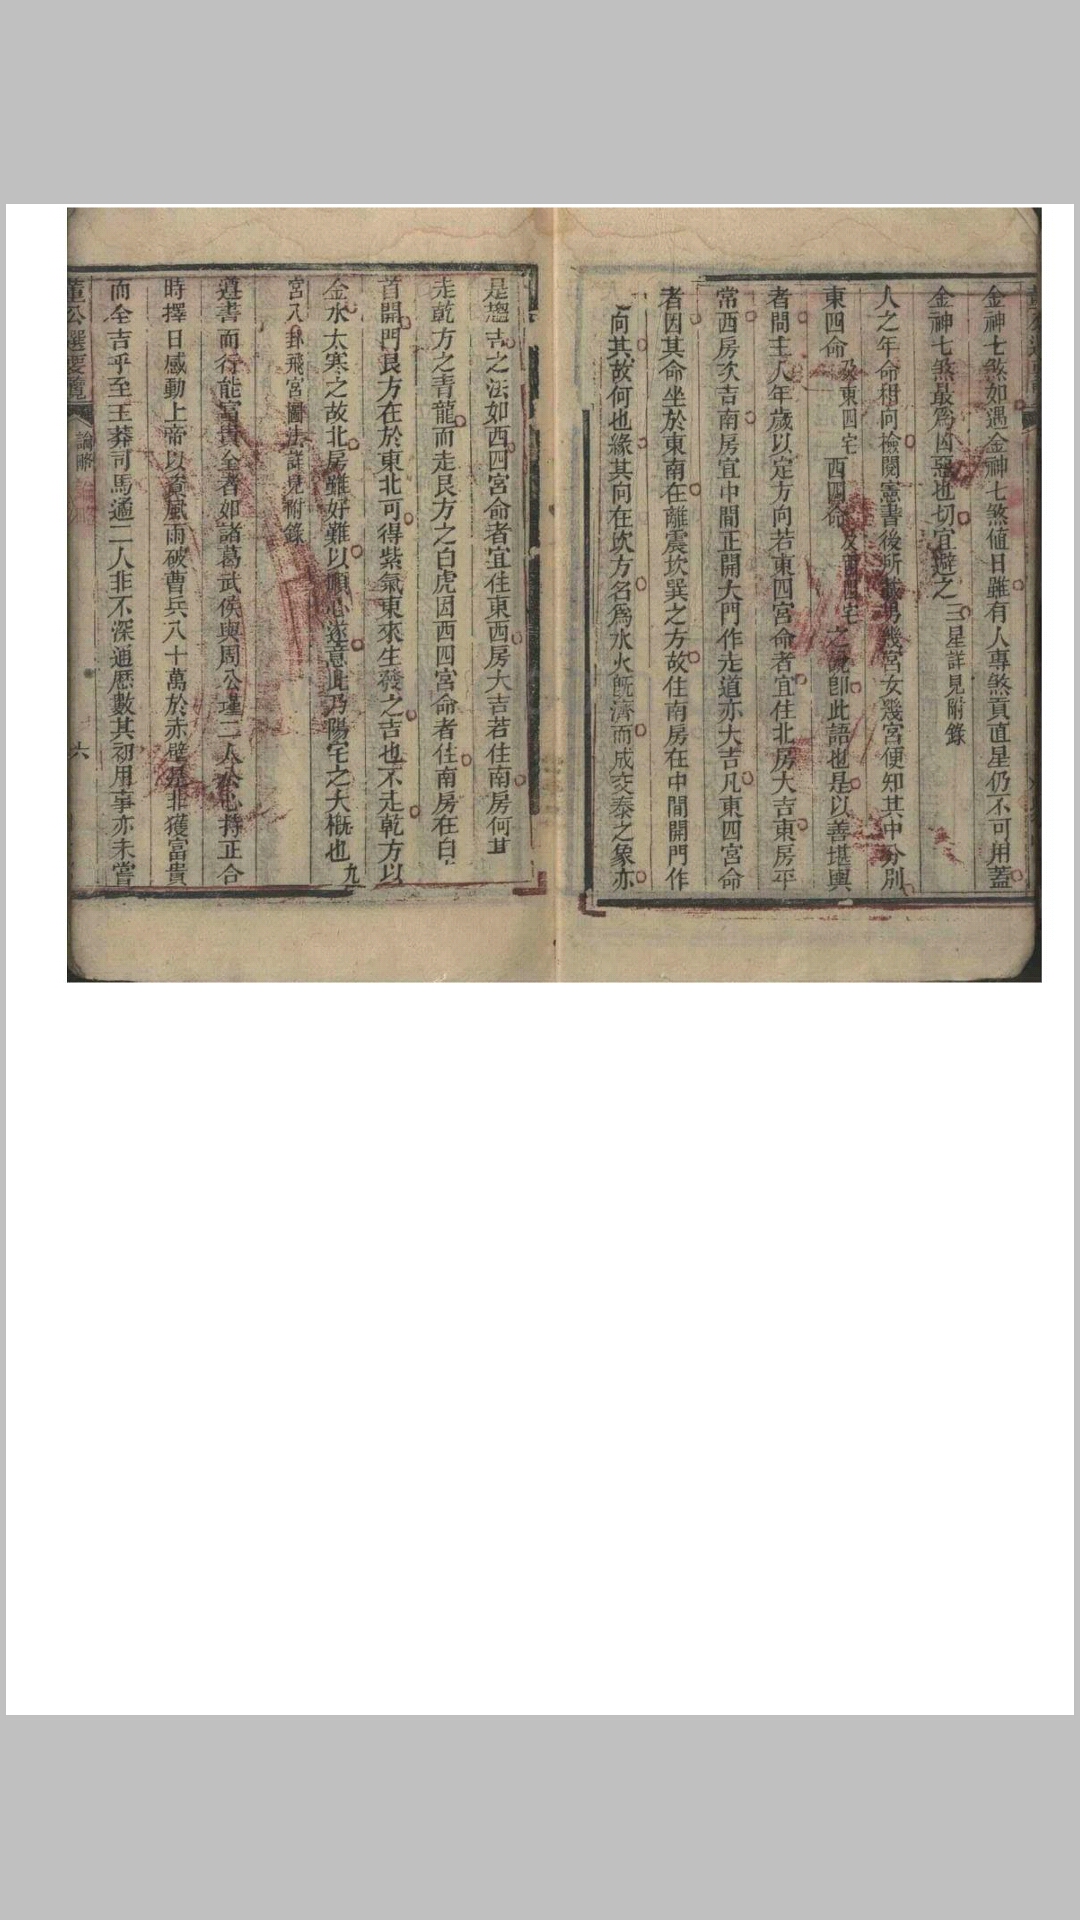 金神七煞如遇金神七煞值日雖有人專煞貢直星仍不可用蓋
金神七煞最為凶惡也切宜避之三星詳見附錄
人之年命相向檢閱憲書後所載男幾宮女幾宮便知其中分別
東四命及東四宅西四命及西四宅之說卽此語也是以善堪輿
者問主人年歲以定方向若東四宮命者宜住北房大吉東房平
常西房次吉南房宜中間正開大門作走道亦大吉凡東四宮命
者因其命坐於東南在離震坎巽之方故住南房在中間開門作
向其故何也緣其向在坎方名為水火旣濟而成交泰之象亦
是趨吉之法如西四宮命者宜住東西房大吉若住南房何其
走乾方之青龍而走艮方之白虎因西四宮命者住南房在白
首開門艮方在於東北可得紫氣東來生發之吉也不走乾方以
金水太寒之故北房雖好難以順心遂意此乃陽宅之大槪也九
宮八卦飛宮圖法詳見附錄
遵書而行能富貴全者如諸葛武侯與周公瑾二人公心持正合
時擇日感動上帝以資風雨破曹兵八十萬於赤壁是非獲富貴
而全吉乎至王莽司馬遹二人非不深通歷數其初用事亦未嘗
董公選要覽
論略
六